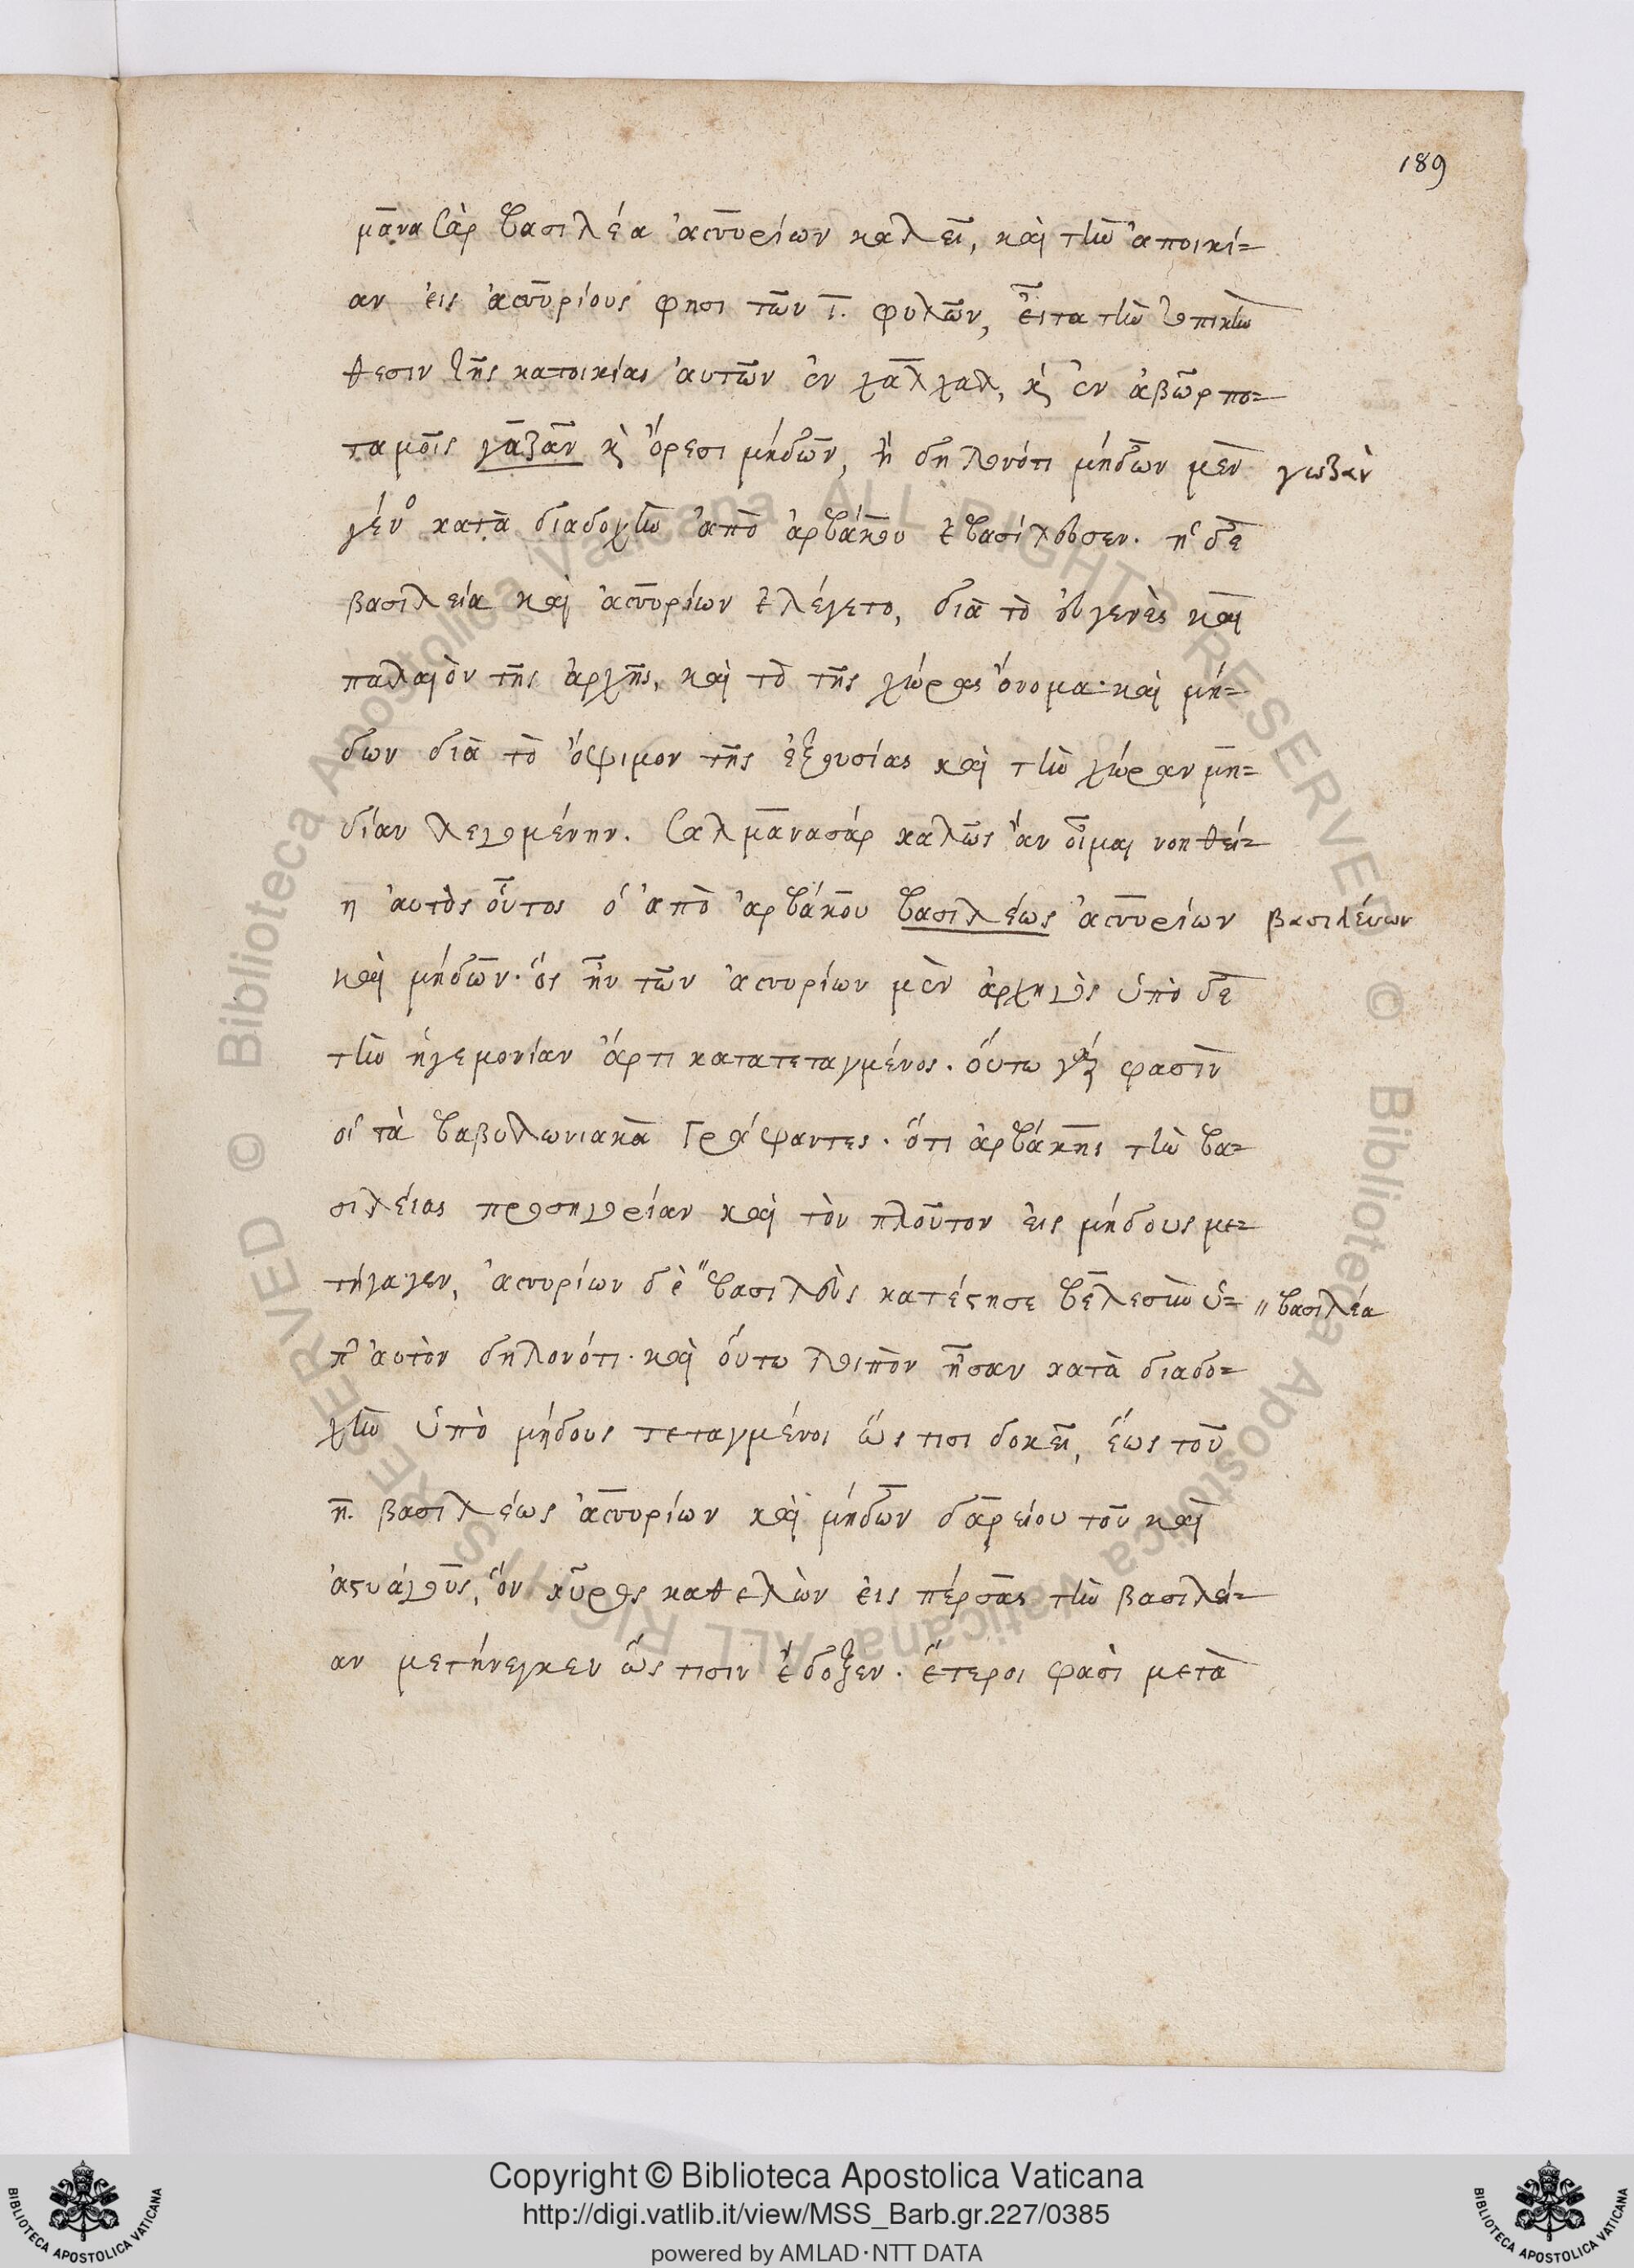 189
μᾶνα σὰρ βασιλέα ἀσσυρίων καλεῖ, καὶ τὴν ἀποικί=
αν εἰς ἀσσυρίους φησὶ τῶν ι. φυλῶν, εἶτα τὴν
θεσιν τῆς κατοικίας αὐτῶν ἐν χαλχαλ, κ ἐν ἀβὼρ πο=
ταμοῖς γαζὰν κ ὄρεσι μήδων, ἢ δηλονότι μήδων μὲν γωζὰν
γέν° κατὰ διαδοχὴν ἀπὸ ἀρβάκου ἐβασίλευσεν. ἡ δὲ
βασιλεία καὶ ἀσσυρίων ἐλέγετο, διὰ τὸ εὐγενὲς καὶ
παλαιὸν τῆς ἀρχῆς, καὶ τὸ τῆς χώρας ὄνομα· καὶ μή=
δων διὰ τὸ ὄψιμον τῆς ἐξουσίας καὶ τὴν χώραν μη=
δίαν λεγομένην. σαλμανασάρ καλῶς ἂν οἶμαι νοηθεί=
η αὐτὸς οὗτος ὁ ἀπὸ ἀρβάκου βασιλέως ἀσσυρίων βασιλέυων
καὶ μήδων· ὃς ἦν τῶν ἀσσυρίων μὲν ἀρχηγὸς ὑπὸ δὲ
τὴν ἡγεμονίαν ἄρτι κατατεταγμένος. οὕτω γάρ φασὶν
οἱ τὰ βαβυλωνιακὰ γράψαντες. ὅτι ἀρβάκης τὴν βα=
σιλείας προσηγορίαν καὶ τὸν πλοῦτον εἰς μήδους με=
τήγαγεν, ἀσσυρίων δὲ "βασιλεὺς κατέστησε βέλεσιν ὑ= "βασιλέα
π' αὐτὸν δηλονότι. καὶ οὕτω λοιπὸν ἦσαν κατὰ διαδο=
χὴν ὑπὸ μήδους τεταγμένοι ὥς τισι δοκεῖ, ἕως τοῦ
η. βασιλέως ἀσσυρίων καὶ μήδων δαρείου τοῦ καὶ
ἀστυάγους, ὃν κῦρος καθελὼν εἰς πέρσας τὴν βασιλεί=
αν μετήνεγκεν ὥς τισιν ἔδοξεν. ἕτεροι φασὶ μετὰ
Copyright © Biblioteca Apostolica Vaticana
http://digi.vatlib.it/view/MSS_Barb.gr.227/0385
powered by AMLAD·NTT DATA
BIBLIOTECA APOSTOLICA VATICANA
BIBLIOTECA APOSTOLICA VATICANA
© Biblioteca Apostolica Vaticana ALL RIGHTS RESERVED
© Biblioteca Apostolica Vaticana ALL RIGHTS RESERVED